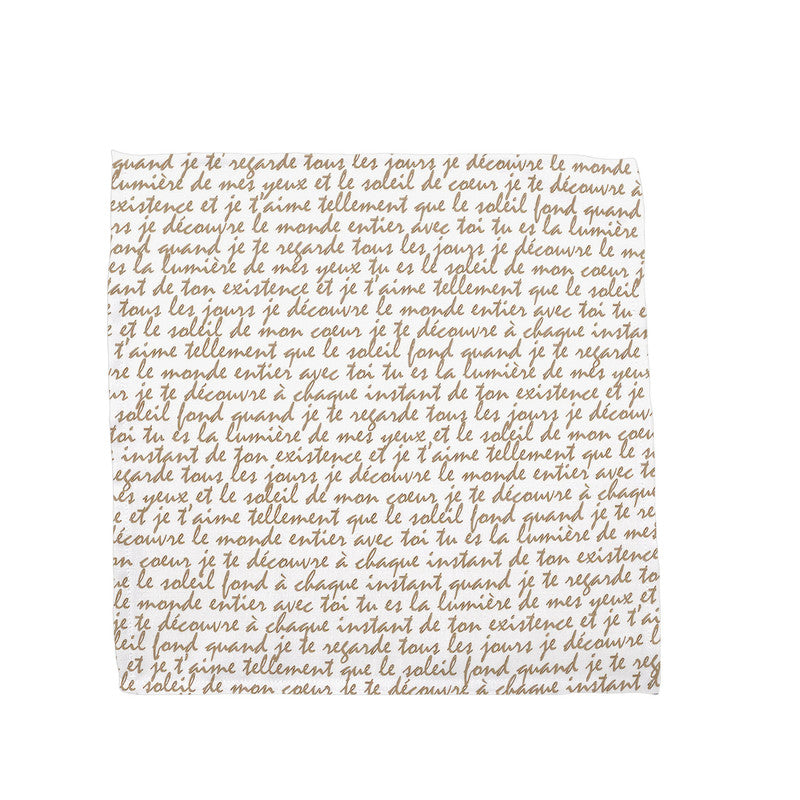 quand je te regarde tous les jours je découvre le monde
lumière de mes yeux et le soleil de coeur je te découvre à
existence et je t'aime tellement que le soleil fond quand
rs je découvre le monde entier avec toi tu es la lumière
ond quand je te regarde tous les jours je découvre le mo
es la lumière de mes yeux tu es le soleil de mon coeur j
ant de ton existence et je t'aime tellement que le soleil
tous les jours je découvre le monde entier avec toi tu e
e et le soleil de mon coeur je te découvre à chaque insta
t'aime tellement que le soleil fond quand je te regarde
re le monde entier avec toi tu es la lumière de mes yeux
ur je te découvre à chaque instant de ton existence et je
soleil fond quand je te regarde tous les jours je découv
toi tu es la lumière de mes yeux et le soleil de mon coeu
instant de ton existence et je t'aime tellement que le s
egarde tous les jours je découvre le monde entier avec to
es yeux et le soleil de mon coeur je te découvre à chaque
e et je t'aime tellement que le soleil fond quand je te re
écouvre le monde entier avec toi tu es la lumière de mes
n coeur je te découvre à chaque instant de ton existence
ue le soleil fond à chaque instant quand je te regarde to
le monde entier avec toi tu es la lumière de mes yeux et
je te découvre à chaque instant de ton existence et je t
leil fond quand je te regarde tous les jours je découvre l
et je t'aime tellement que le soleil fond quand je te reg
le soleil de mon coeur je te découvre à chaque instant d